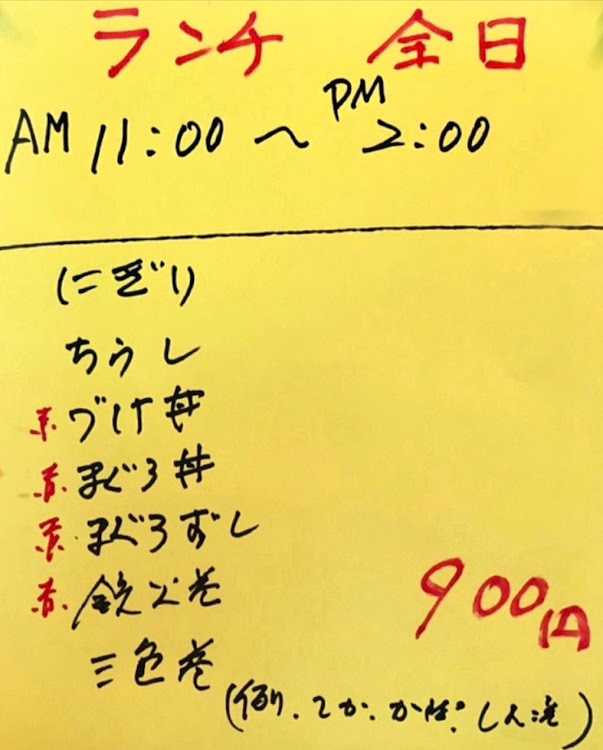 ランチ 全日
AM 11:00 ～ PM 2:00
にぎり
ちらし
赤.づけ丼
赤.まぐろ丼
赤.まぐろずし
赤.鉄火巻
三色巻
900円
(例.てか.かっぱ.しんこ巻)